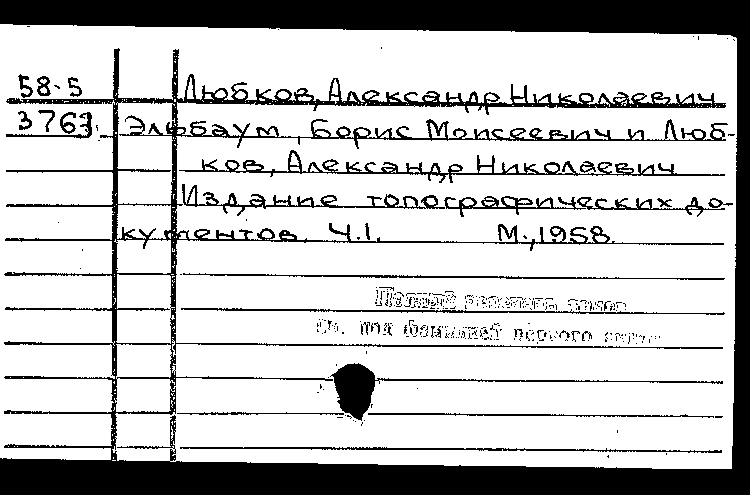 58-5 Любков, Александр Николаевич
3763. Эльбаум, Борис Моисеевич и Люб-
ков, Александр Николаевич
Издание топографических до-
кументов. Ч.I. М., 1958.
См. под фамилией первого